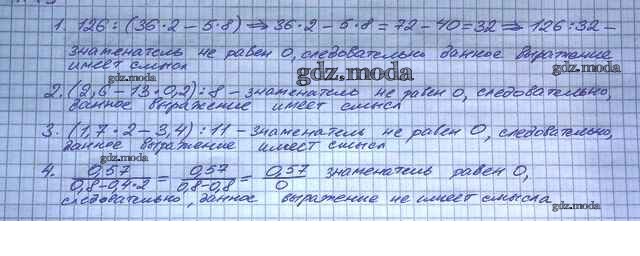 1. 126 : (36·2 − 5·8) ⇒ 36·2 − 5·8 = 72 − 40 = 32 ⇒ 126 : 32 −
знаменатель не равен 0, следовательно данное выражение
имеет смысл
gdz.moda
gdz.moda
2. (2,6 − 13·0,2) : 8 − знаменатель не равен 0, следовательно,
данное выражение имеет смысл
3. (1,7·2 − 3,4) : 11 − знаменатель не равен 0, следовательно,
данное выражение имеет смысл
gdz.moda
4. 0,57/(0,8−0,4·2) = 0,57/(0,8−0,8) = 0,57/0 знаменатель равен 0,
следовательно, данное выражение не имеет смысла
gdz.moda